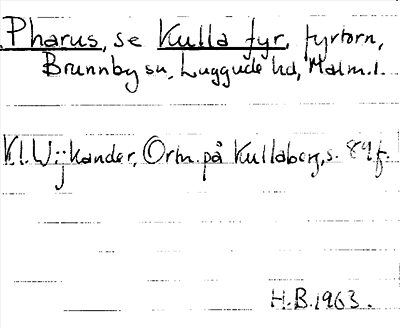 Pharus, se Kulla fyr, fyrtorn,
Brunnby sn, Luggude hd, Malm. l.
K. I. Wijkander, Ortn. på Kullaberg, s. 89 f.
H.B. 1963.